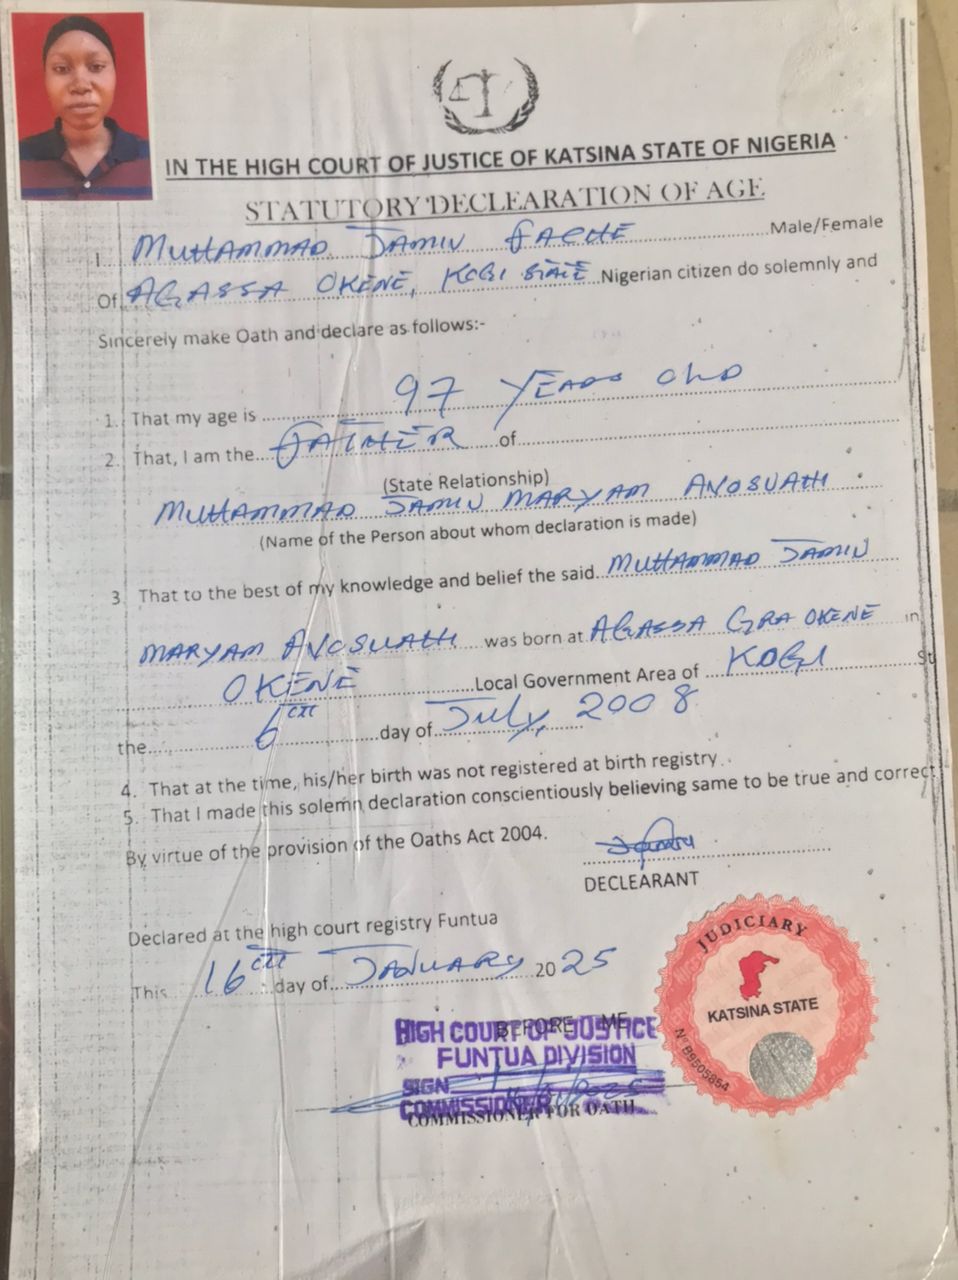 IN THE HIGH COURT OF JUSTICE OF KATSINA STATE OF NIGERIA
STATUTORY DECLEARATION OF AGE
I. MUHAMMAD JAMIU Male/Female
Of AGASSA OKENE, KOGI STATE Nigerian citizen do solemnly and
Sincerely make Oath and declare as follows:-
1. That my age is 97 YEARS OLD
2. That, I am the FATHER of
(State Relationship)
MUHAMMAD JAMIU MARYAM
(Name of the Person about whom declaration is made)
3. That to the best of my knowledge and belief the said MUHAMMAD JAMIU
MARYAM was born at AGASSA GRA OKENE in
OKENE Local Government Area of KOGI St
the 6TH day of July, 2008
4. That at the time, his/her birth was not registered at birth registry.
5. That I made this solemn declaration conscientiously believing same to be true and correct
By virtue of the provision of the Oaths Act 2004.
DECLEARANT
Declared at the high court registry Funtua
This 16TH day of JANUARY 2025
BEFORE ME
HIGH COURT OF JUSTICE
FUNTUA DIVISION
SIGN
COMMISSIONER
COMMISSIONER FOR OATH
JUDICIARY
KATSINA STATE
N° B9505854